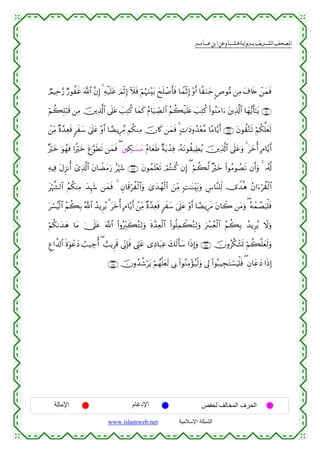 المصحف الشريف برواية هشام عن ابن عامر
فَمَنْ خَافَ مِن مُّوصٍ جَنَفًا أَوْ إِثْمًا فَأَصْلَحَ بَيْنَهُمْ فَلَآ إِثْمَ عَلَيْهِ ۚ إِنَّ ٱللَّهَ غَفُورٌ رَّحِيمٌ
يَٰٓأَيُّهَا ٱلَّذِينَ ءَامَنُوا۟ كُتِبَ عَلَيْكُمُ ٱلصِّيَامُ كَمَا كُتِبَ عَلَى ٱلَّذِينَ مِن قَبْلِكُمْ
لَعَلَّكُمْ تَتَّقُونَ أَيَّامًا مَّعْدُودَٰتٍ ۚ فَمَن كَانَ مِنكُم مَّرِيضًا أَوْ عَلَىٰ سَفَرٍ فَعِدَّةٌ مِّنْ
أَيَّامٍ أُخَرَ ۚ وَعَلَى ٱلَّذِينَ يُطِيقُونَهُۥ فِدْيَةٌ طَعَامُ مَسَٰكِينَ ۖ فَمَن تَطَوَّعَ خَيْرًا فَهُوَ خَيْرٌ
لَّهُۥ ۚ وَأَن تَصُومُوا۟ خَيْرٌ لَّكُمْ ۖ إِن كُنتُمْ تَعْلَمُونَ شَهْرُ رَمَضَانَ ٱلَّذِىٓ أُنزِلَ فِيهِ
ٱلْقُرْءَانُ هُدًى لِّلنَّاسِ وَبَيِّنَٰتٍ مِّنَ ٱلْهُدَىٰ وَٱلْفُرْقَانِ ۚ فَمَن شَهِدَ مِنكُمُ ٱلشَّهْرَ
فَلْيَصُمْهُ ۖ وَمَن كَانَ مَرِيضًا أَوْ عَلَىٰ سَفَرٍ فَعِدَّةٌ مِّنْ أَيَّامٍ أُخَرَ ۗ يُرِيدُ ٱللَّهُ بِكُمُ ٱلْيُسْرَ
وَلَا يُرِيدُ بِكُمُ ٱلْعُسْرَ وَلِتُكْمِلُوا۟ ٱلْعِدَّةَ وَلِتُكَبِّرُوا۟ ٱللَّهَ عَلَىٰ مَا هَدَىٰكُمْ
وَلَعَلَّكُمْ تَشْكُرُونَ وَإِذَا سَأَلَكَ عِبَادِى عَنِّى فَإِنِّى قَرِيبٌ ۖ أُجِيبُ دَعْوَةَ ٱلدَّاعِ
إِذَا دَعَانِ ۖ فَلْيَسْتَجِيبُوا۟ لِى وَلْيُؤْمِنُوا۟ بِى لَعَلَّهُمْ يَرْشُدُونَ
الحرف المخالف لحفص الإدغام الإمالة
الشبكة الإسلامية www.islamweb.net